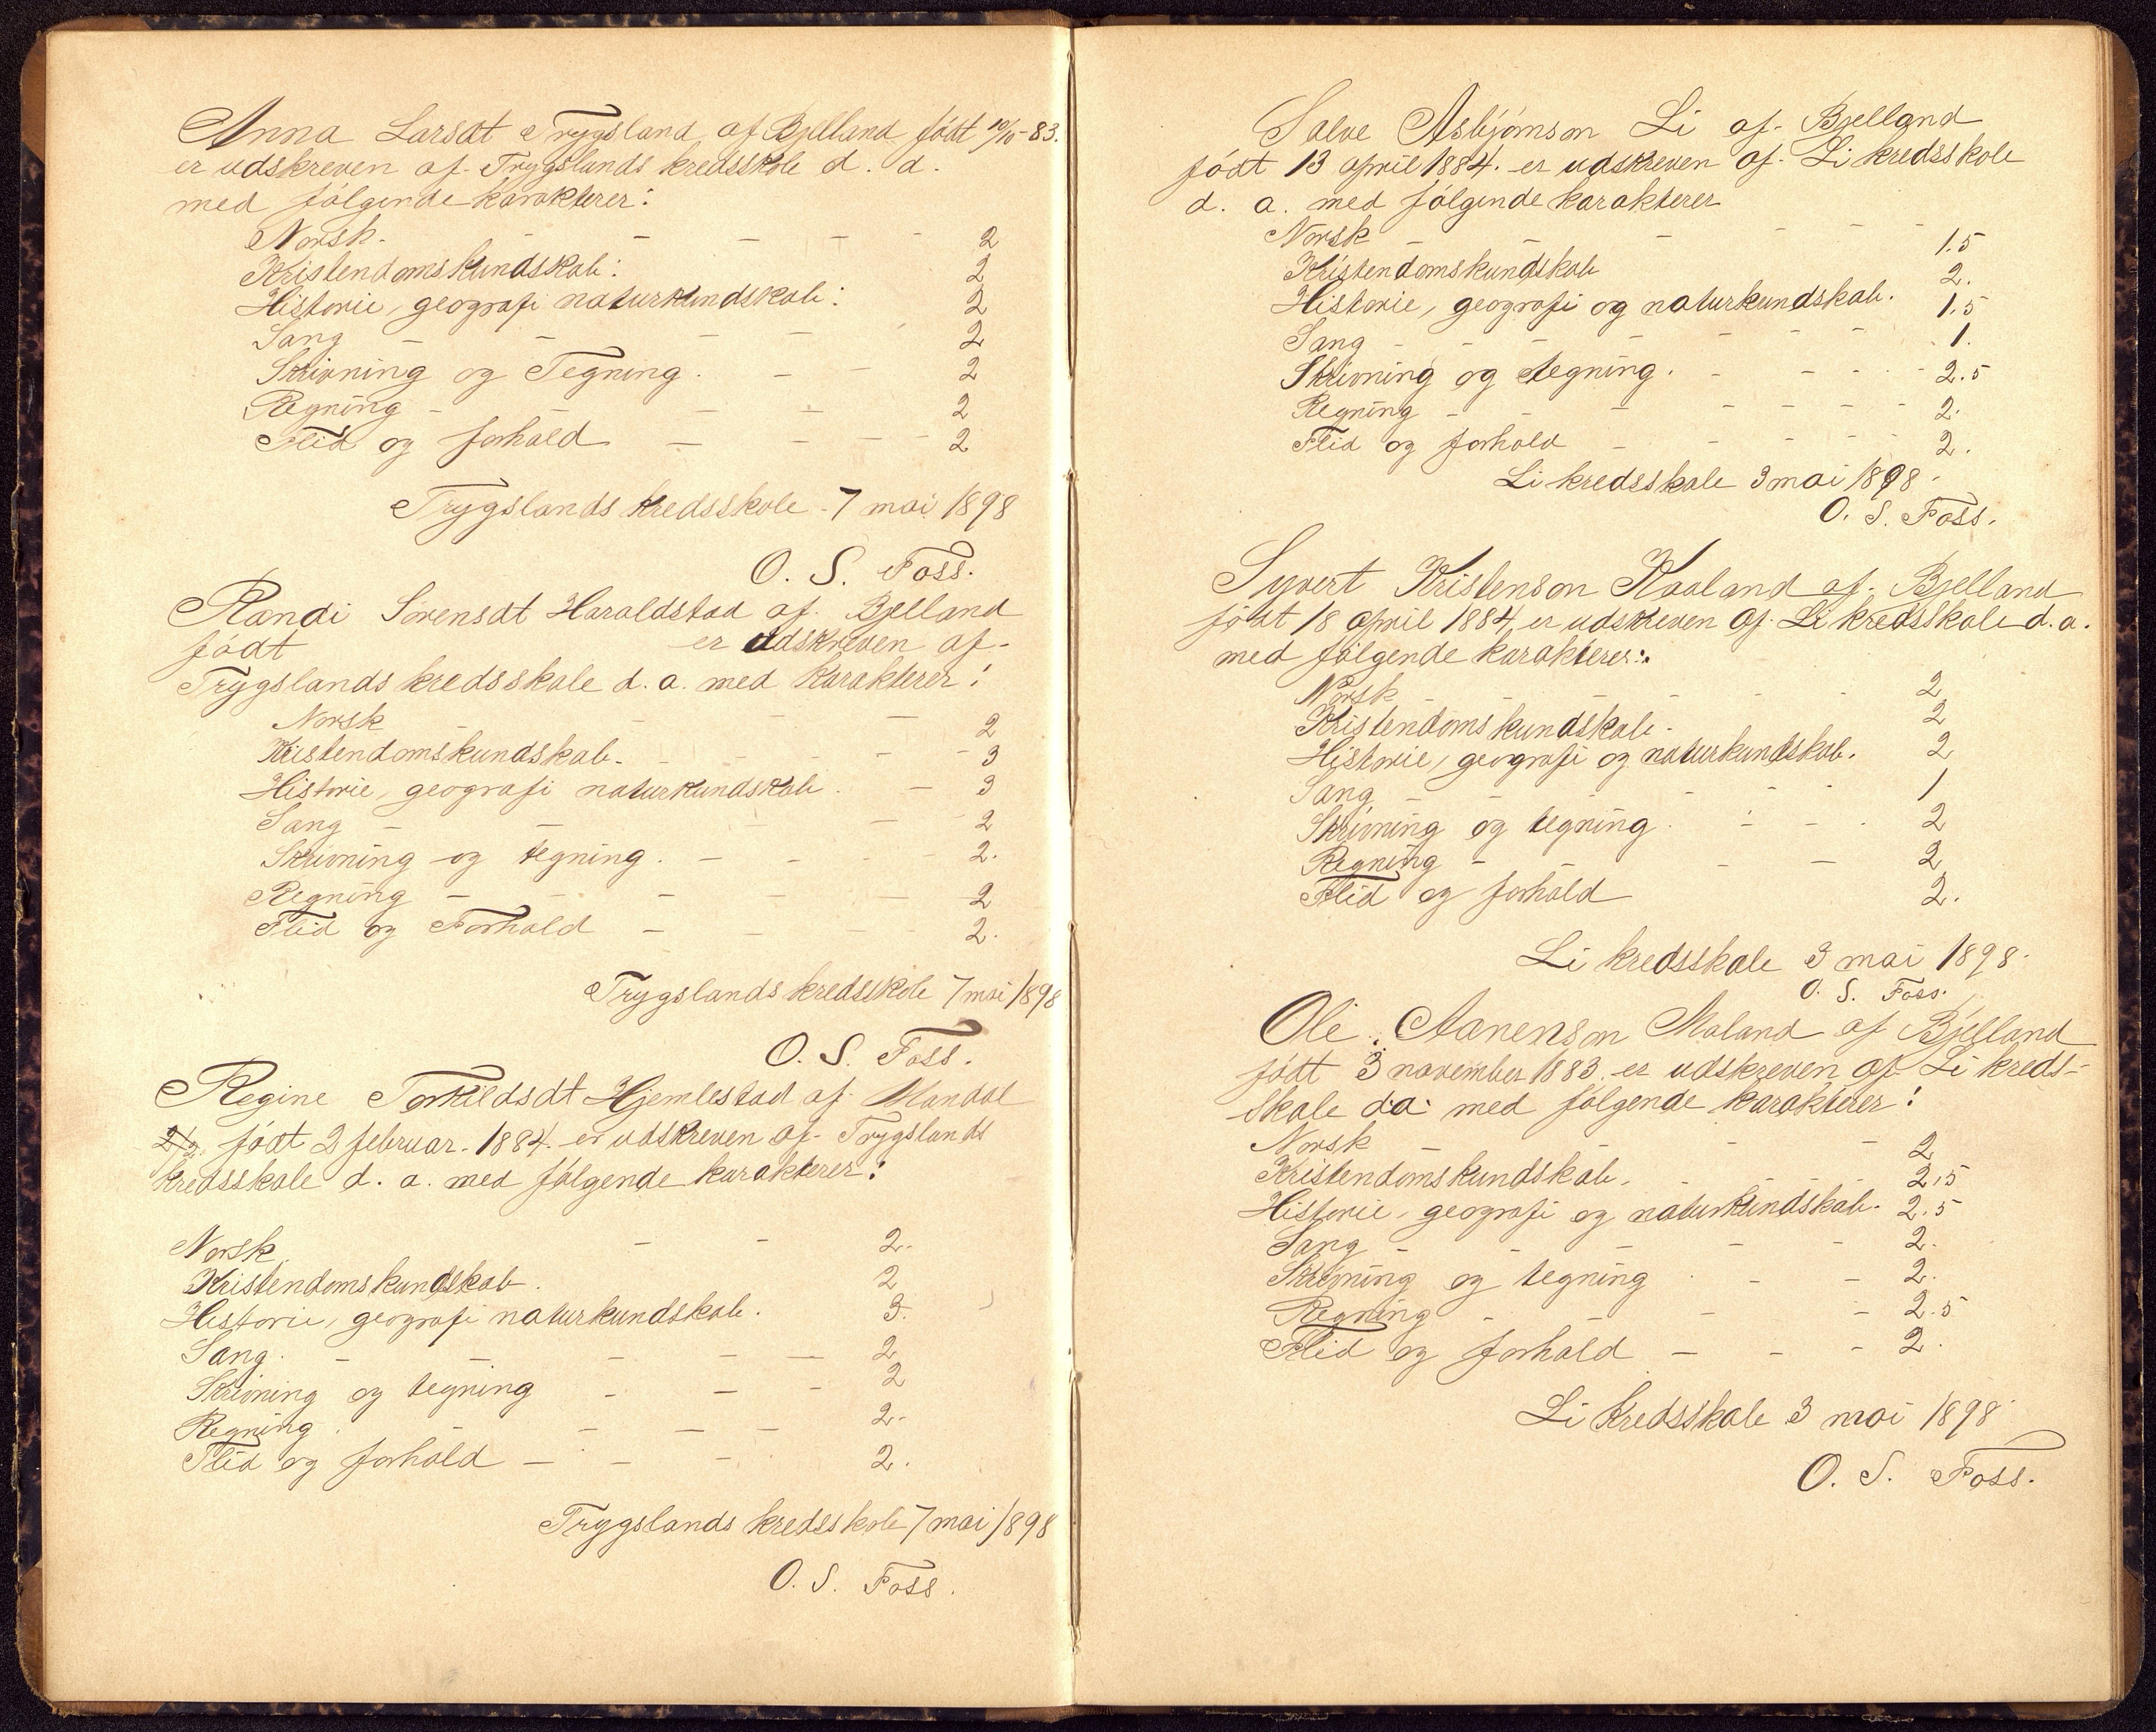 Anna Larsdt Trygsland af Bjelland født 10/10-83.
er udskreven af Trygslands kredsskole d. d.
med følgende karakterer:
Norsk. - - - - - 2
Kristendomskundskab: 2
Historie, geografi naturkundskab: 2
Sang - - - - 2
Skrivning og Tegning. - - 2
Regning - - - 2
Flid og forhold - - - - 2
Trygslands kredsskole 7 mai 1898
O. S. Foss.
Randi Sørensdt Haraldstad af Bjelland
født er udskreven af
Trygslands kredsskole d. a. med karakterer:
Norsk - - - 2
Kristendomskundskab. - - - 3
Historie, geografi naturkundskab. - 3
Sang - - - - - 2
Skrivning og tegning. - - - - 2.
Regning - - - - - 2
Flid og Forhold - - - - 2.
Trygslands kredsskole 7 mai 1898
O. S. Foss.
Regine Torkildsdt Hjemlestad af Mandal
født 2 februar. 1884. er udskreven af Trygslands
kredsskole d. a. med følgende karakterer:
Norsk - - 2.
Kristendomskundskab. 2
Historie, geografi naturkundskab. 3.
Sang. - - - - - 2
Skrivning og tegning - - - 2
Regning. - - - 2.
Flid og forhold - - - 2.
Trygslands kredsskole 7 mai 1898
O. S. Foss.
Salve Asbjørnson Li af Bjelland
født 13 april 1884. er udskreven af Li kredsskole
d. a. med følgende karakterer
Norsk - - - - - - 1.5
Kristendomskundskab 2.
Historie, geografi og naturkundskab. 1.5
Sang - - - - - - 1.
Skrivning og tegning. - - - - 2.5
Regning - - - - - - - 2.
Flid og forhold - - - - - 2.
Li kredsskole 3 mai 1898
O. S. Foss.
Syvert Kristenson Haaland af Bjelland
født 18 april 1884 er udskreven af Li kredsskole d. a.
med følgende karakterer:
Norsk - - - - - 2
Kristendomskundskab. 2
Historie, geografi og naturkundskab. 2
Sang - - - - - 1
Skrivning og tegning. - - - 2
Regning - - - - 2
Flid og forhold 2.
Li kredsskole 3 mai 1898.
O. S. Foss.
Ole Aanenson Maland af Bjelland
født 3 november 1883. er udskreven af Li kreds-
skole d. a. med følgende karakterer:
Norsk - - - - 2
Kristendomskundskab. - - - 2.5
Historie, geografi og naturkundskab. 2.5
Sang - - - - - 2.
Skrivning og tegning - - - 2.
Regning - - - 2.5
Flid og forhold - - - 2.
Li kredsskole 3 mai 1898
O. S. Foss.